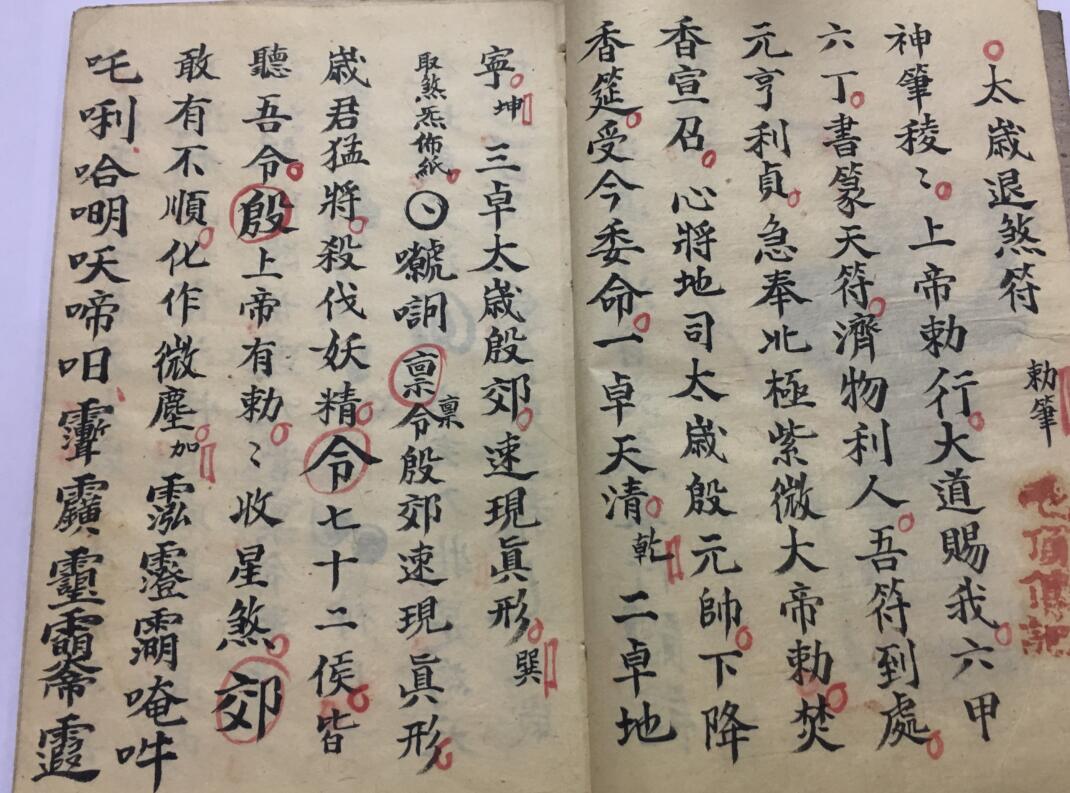 太歲退煞符
勅筆
神筆稜〻上帝勅行大道賜我六甲
六丁書篆天符濟物利人吾符到處
元亨利貞急奉北極紫微大帝勅焚
香宣召心將地司太歲殷元帥下降
香筵受今委命一卓天清乾二卓地
寧坤三卓太歲殷郊速現眞形巽
取煞炁佈紙嚬詷禀禀令殷郊速現眞形
歲君猛將殺伐妖精令七十二侯皆
聽吾令殷上帝有勅〻收星煞郊
敢有不順化作微塵加霐霮唵吽
吒唎哈明呋啼呾